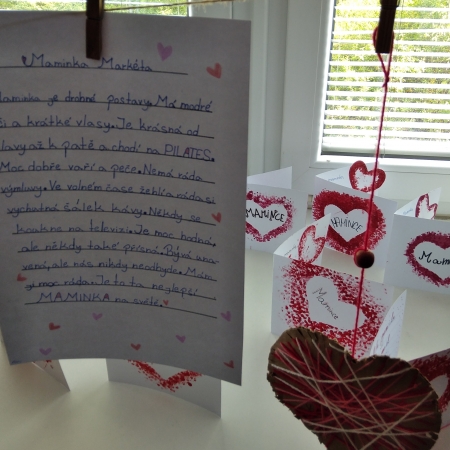 Maminka Markéta
Maminka je drobné postavy. Má modré
oči a krátké vlasy. Je krásná od
hlavy až k patě a chodí na PILATES.
Moc dobře vaří a peče. Nemá ráda
výmluvy. Ve volném čase žehlí a ráda si
vychutná šálek kávy. Někdy se
koukne na televizi. Je moc hodná,
ale někdy také přísná. Bývá una-
vená, ale nás nikdy neodbyde. Mám
ji moc ráda. Je to ta nejlepší
MAMINKA na světě.
MAMINCE
MAMINCE
Mamince
Mam